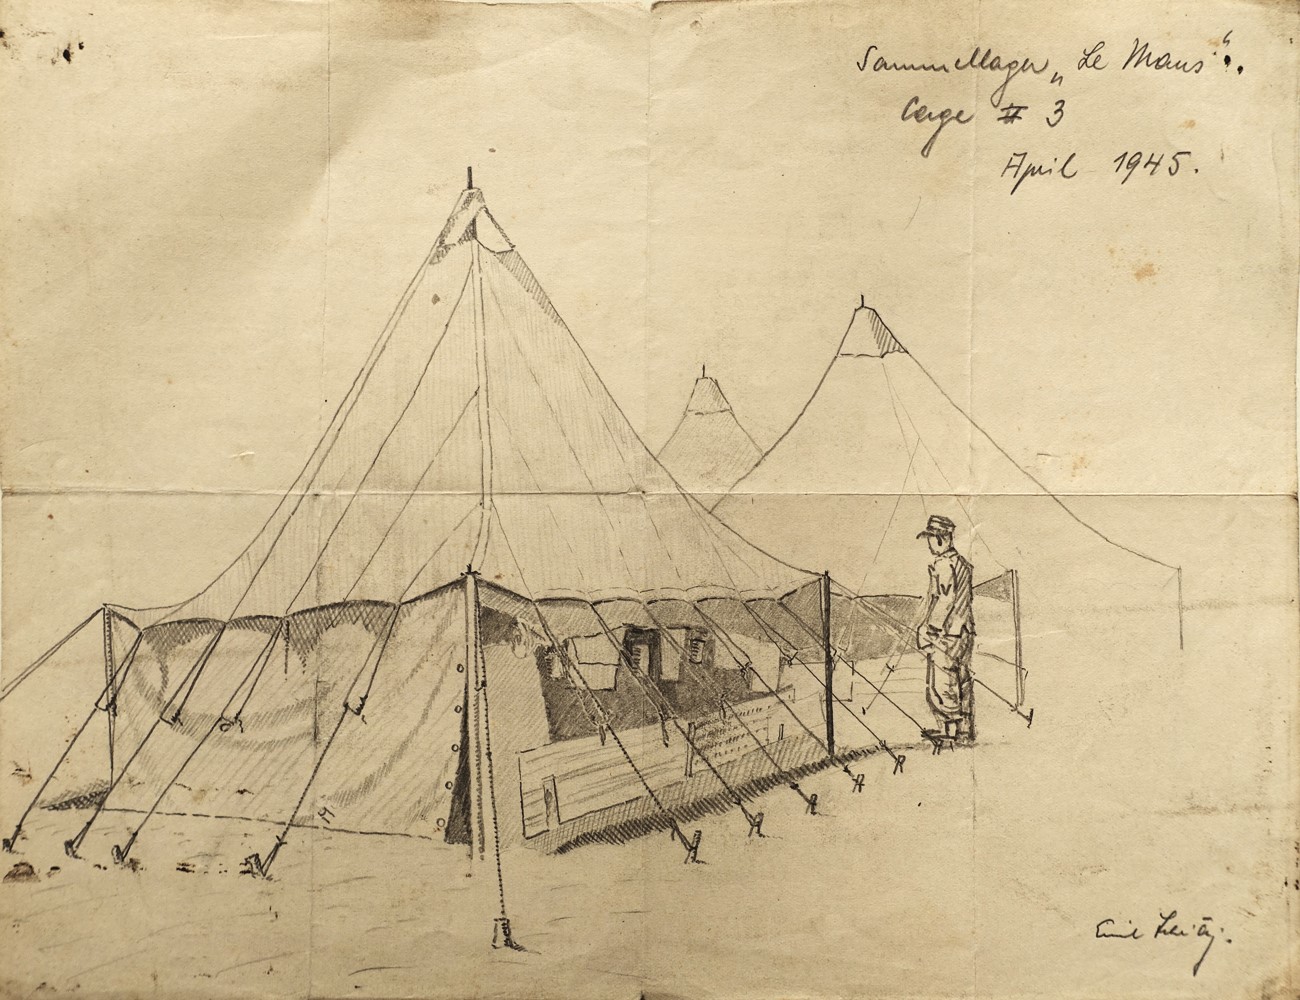 Sammellager „Le Mans“.
Cage # 3
April 1945.
Emil